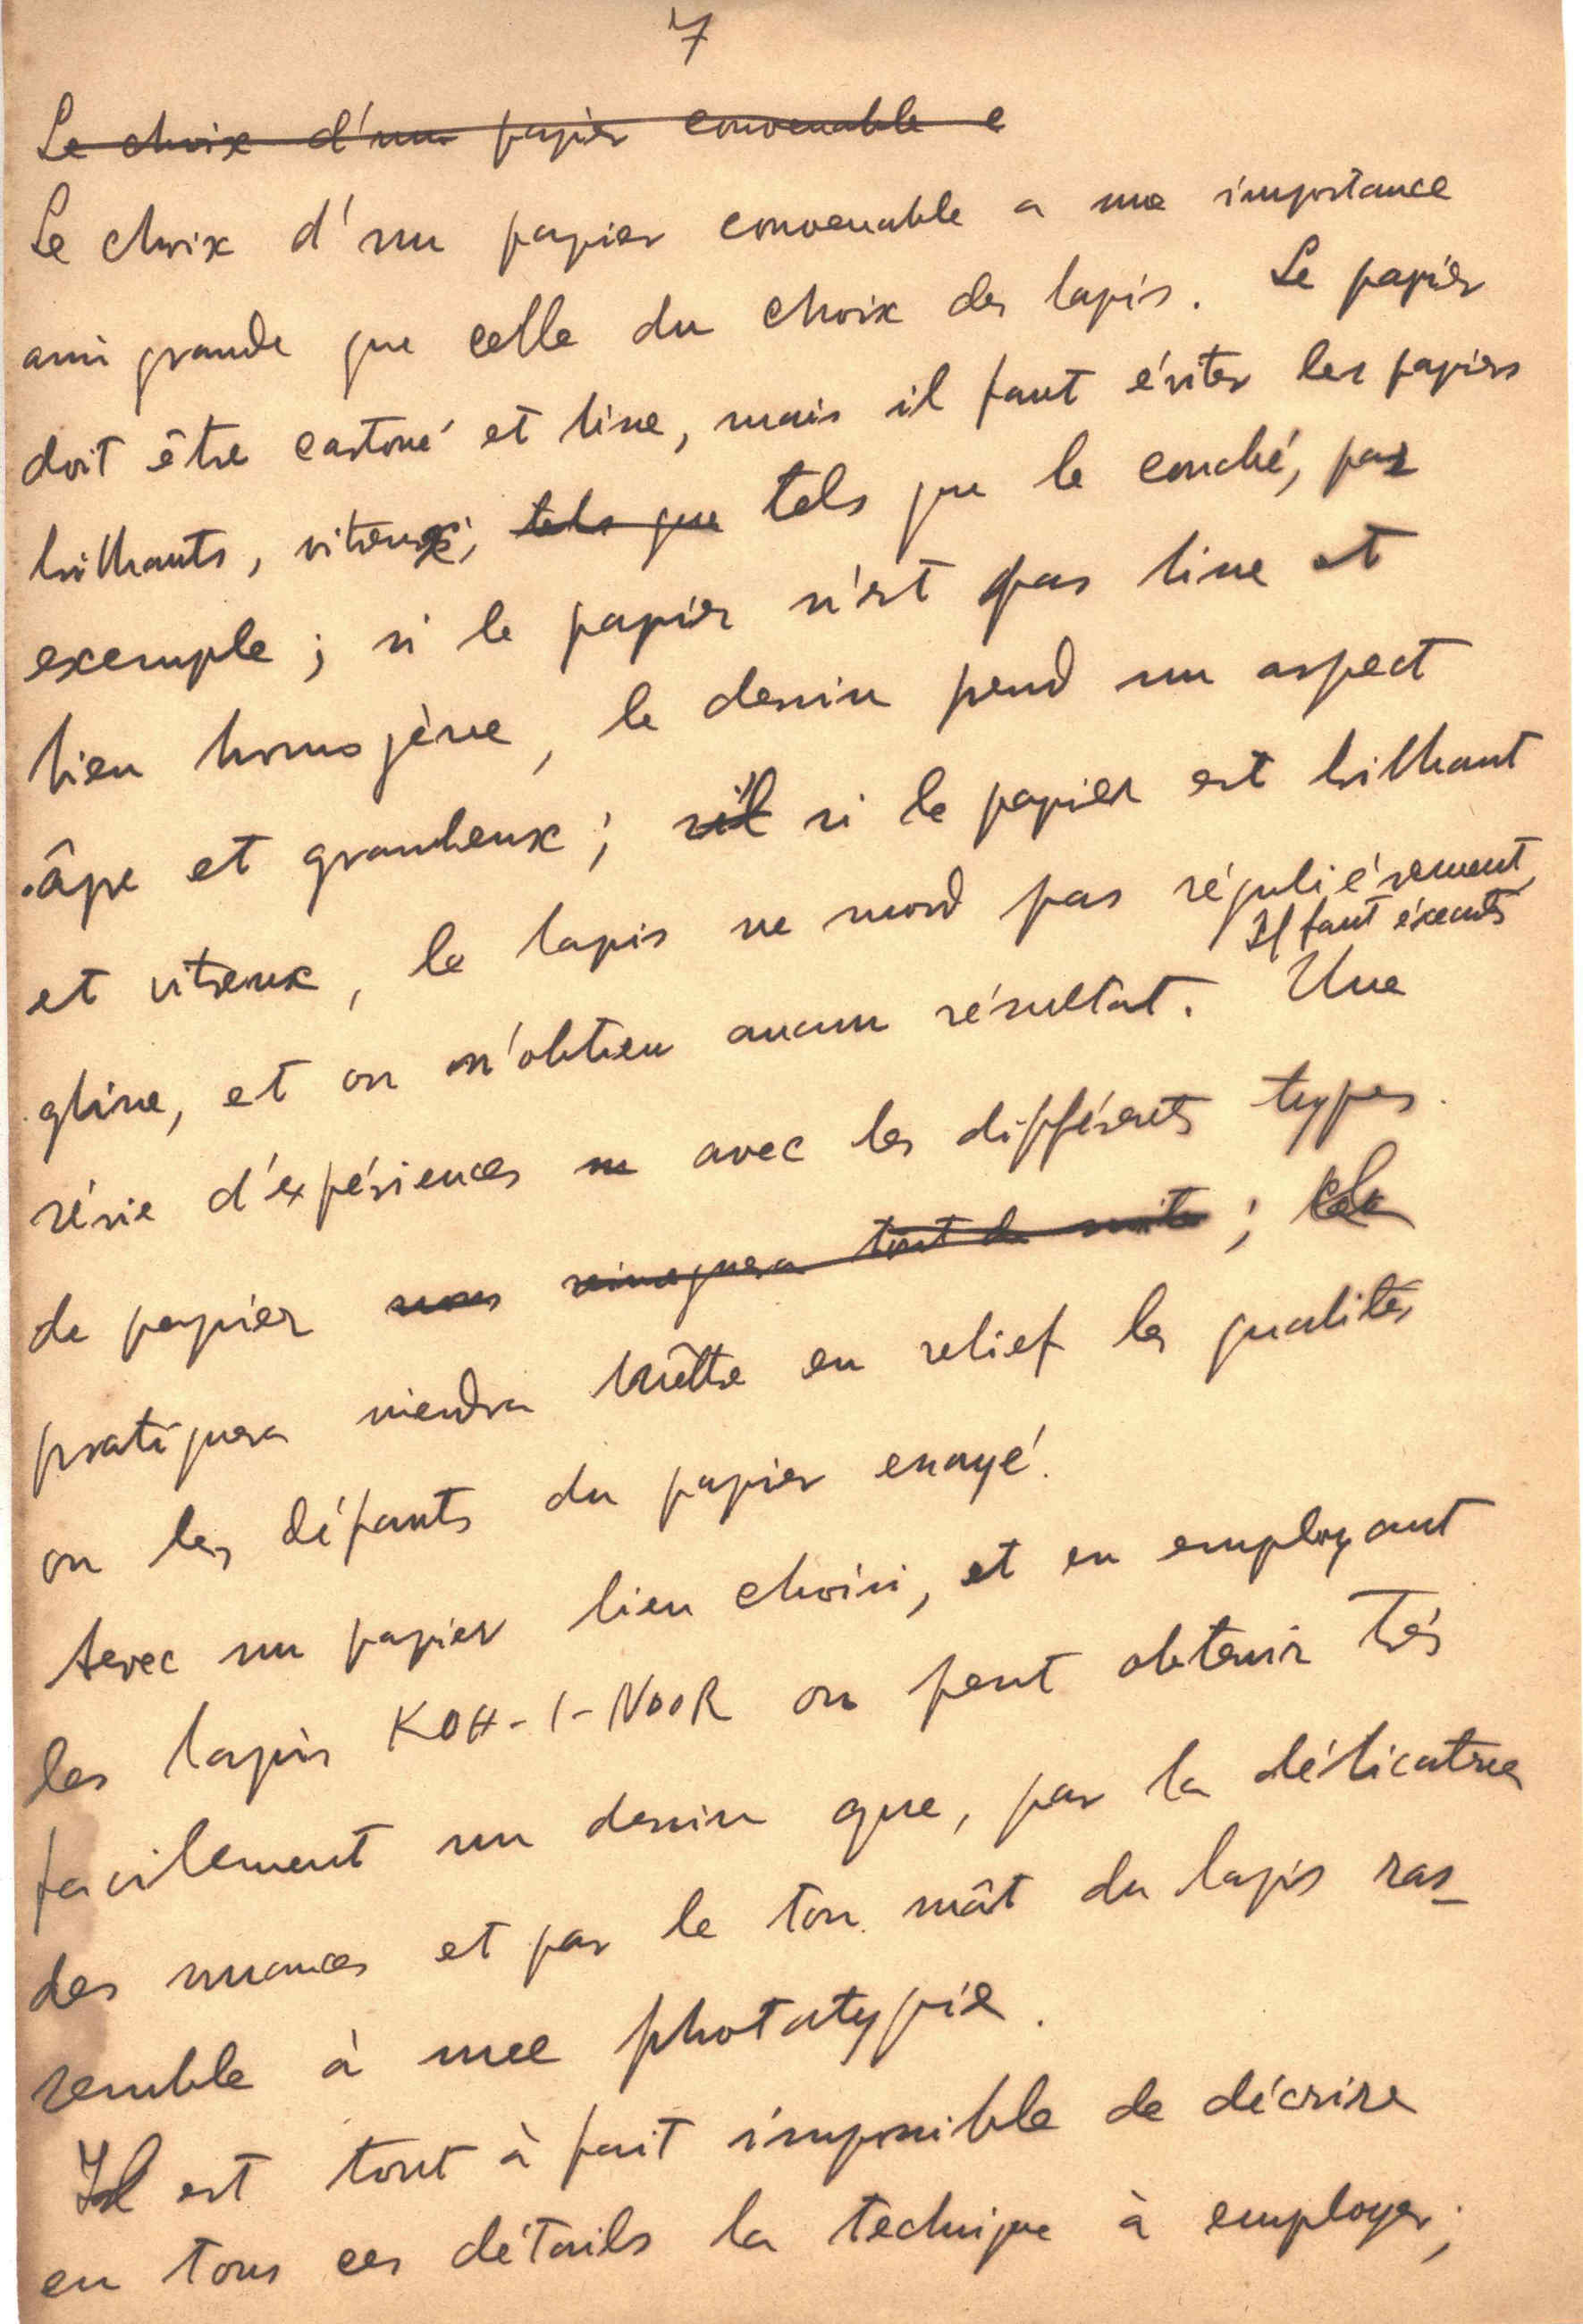 7
Le choix d'un papier convenable e
Le choix d'un papier convenable a une importance
aussi grande que celle du choix des lapis. Le papier
doit être cartoné et lisse, mais il faut éviter les papiers
brillants, vitreux; tels que tels que le couché, par
exemple; si le papier n'est pas lisse et
bien homogène, le dessin prend un aspect
âpre et granuleux; s'il si le papier est brillant
et vitreux, le lapis ne mord pas réguliérement,
Il faut éxecuter
glisse, et on n'obtien aucun résultat. Une
série d'expériences avec les différents types
de papier nous tout de suite; cela
pratiquera viendra mèttre en relief les qualités
ou les défauts du papier essayé.
Avec un papier bien choisi, et en employant
les lapis KOH-I-NOOR on peut obtenir trés
facilement un dessin que, par la délicatesse
des nuances et par le ton mât du lapis ras-
semble à une phototypie.
Il est tout à fait impossible de décrire
en tous ces détails la technique à employer;